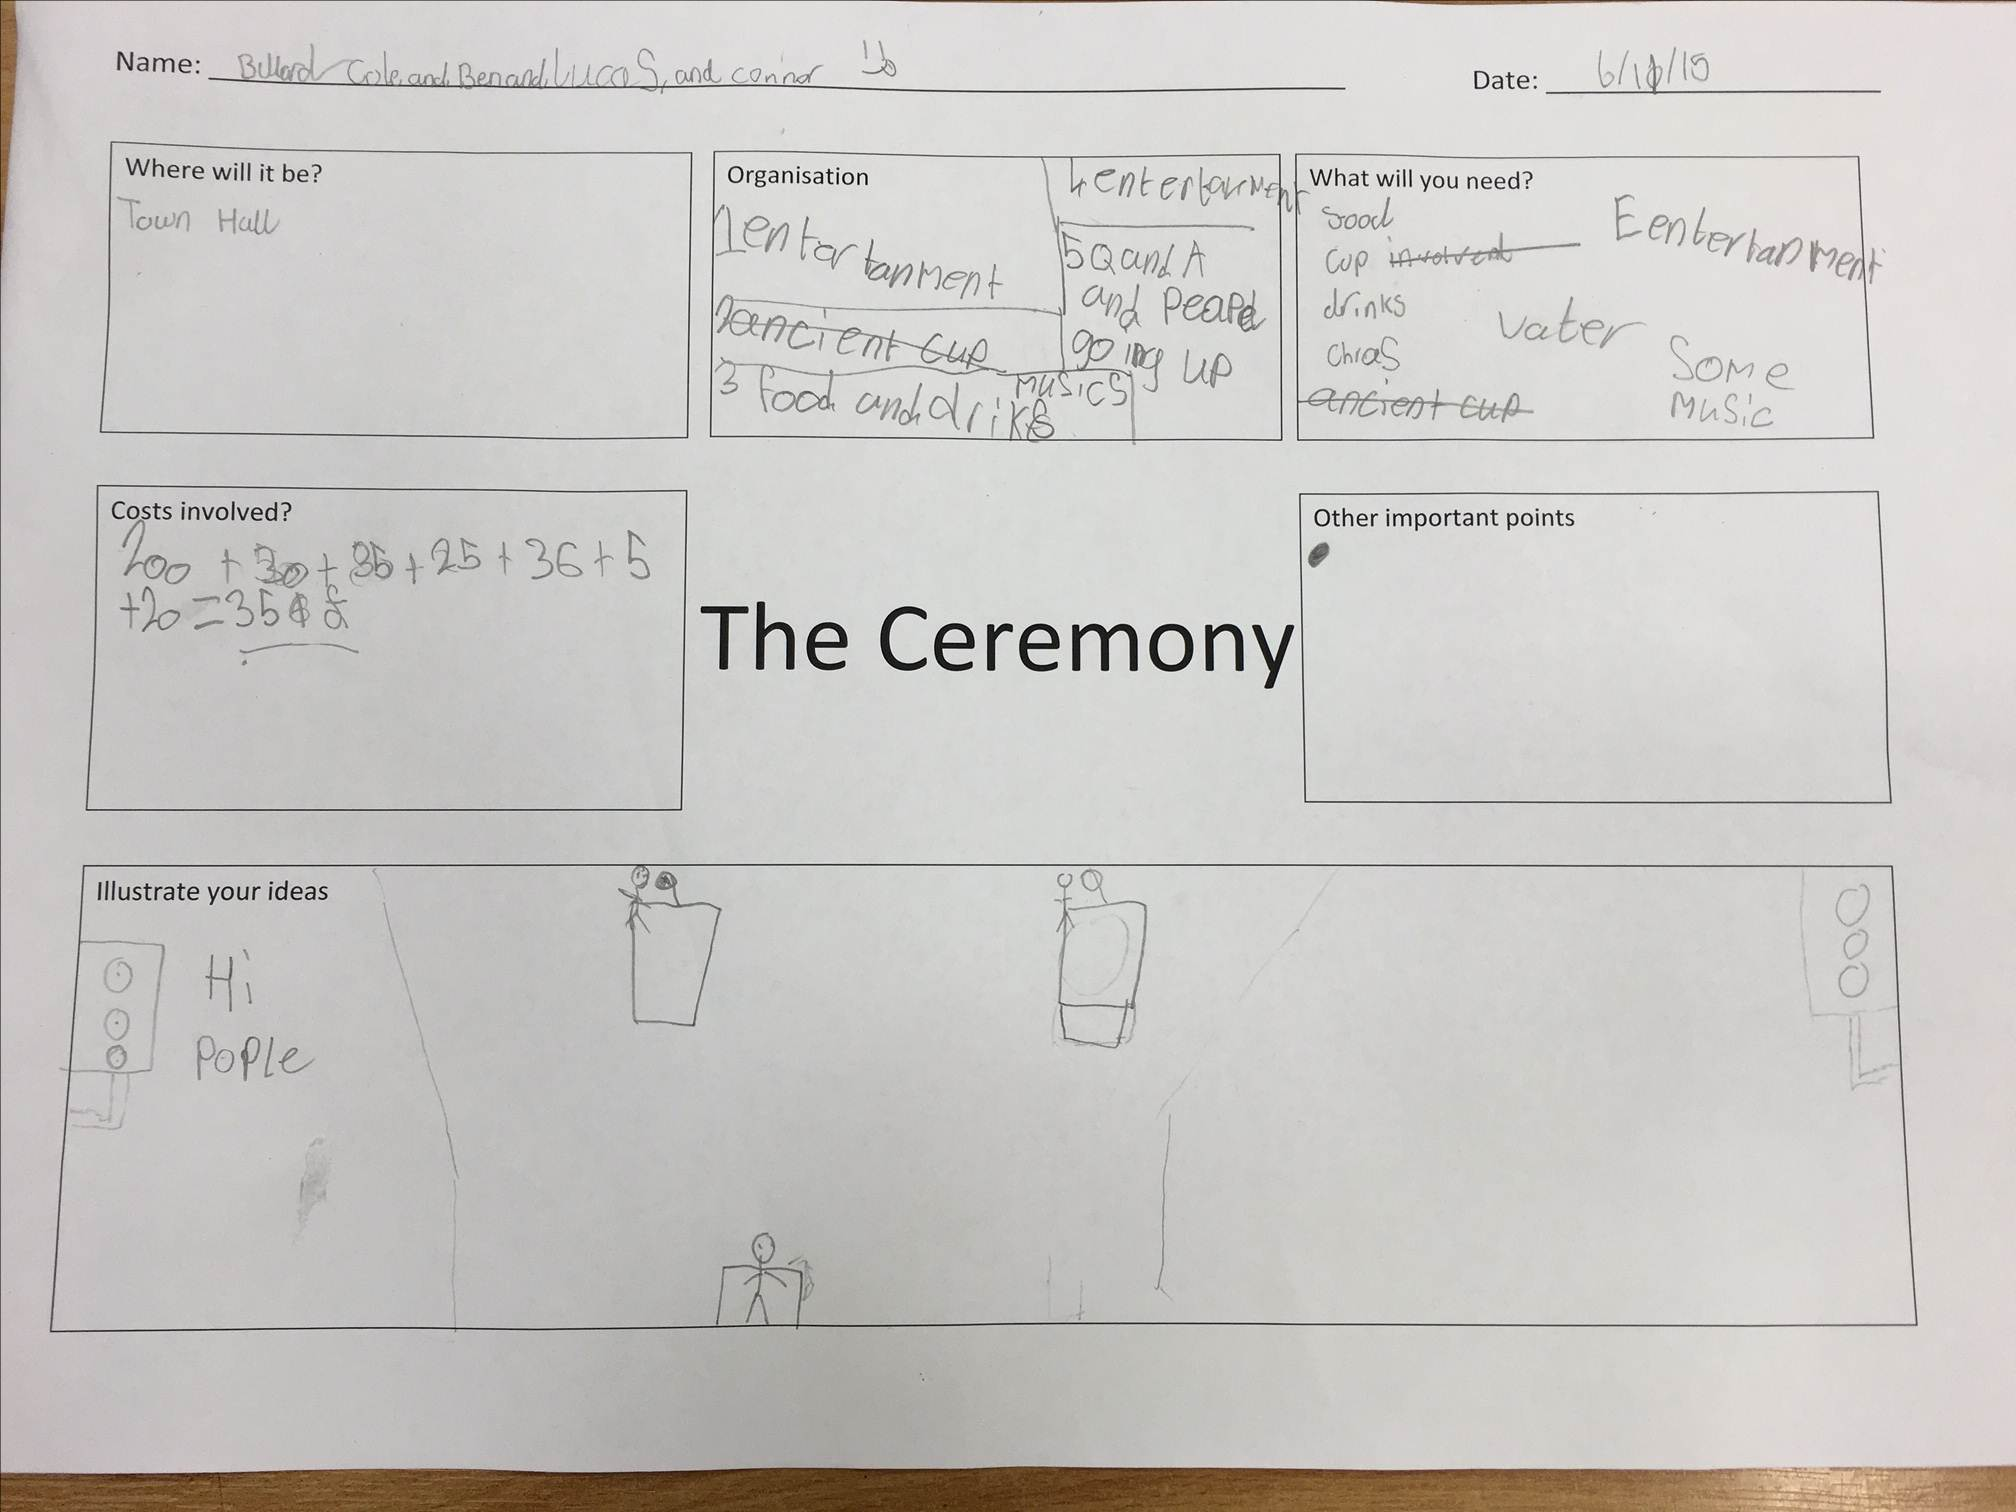 Name: Cole and Ben and Lucas, and connor
Date: 6/11/15
Where will it be?
Town Hall
Organisation
1 entertanment
2 ancient cup
3 food and driks
musics
4 entertainment
5 Q and A
and
going up
What will you need?
cup involvent
drinks
ancient cup
Eentertanment
vater
Some
music
Costs involved?
200 + 30 + 35 + 25 + 36 + 5
+20 =
The Ceremony
Other important points
Illustrate your ideas
Hi
Pople